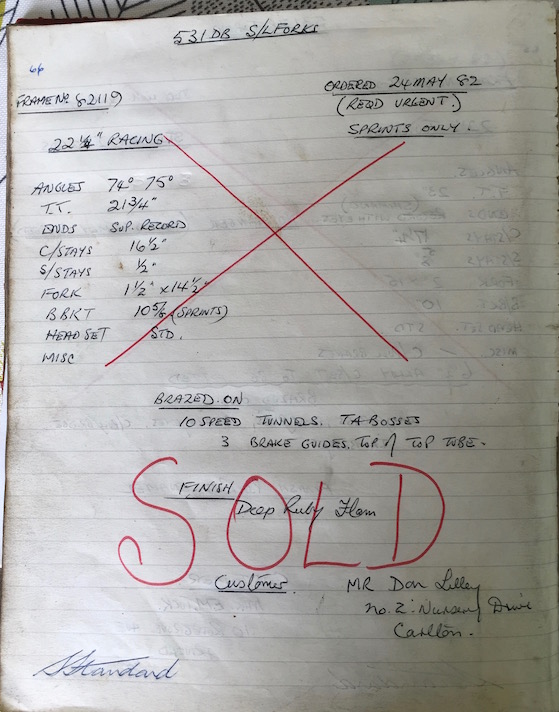 531 DB S/L FORKS
66
FRAME No 82119
ORDERED 24 MAY 82
(REQD URGENT.)
SPRINTS ONLY.
22 1/4" RACING
ANGLES 74° 75°
T.T. 21 3/4"
ENDS SUP. RECORD
C/STAYS 16 1/2"
S/STAYS 1/2"
FORK 1 1/2" x 14 1/2"
B BKT 10 5/8 (SPRINTS)
HEAD SET STD.
MISC
BRAZED. ON
10 SPEED TUNNELS. TA BOSSES
3 BRAKE GUIDES. TOP of TOP TUBE.
FINISH.
Deep Ruby Flam
SOLD
Customer. MR Don Lilley
No. 2: Nursery Drive
Carlton.
S Standard